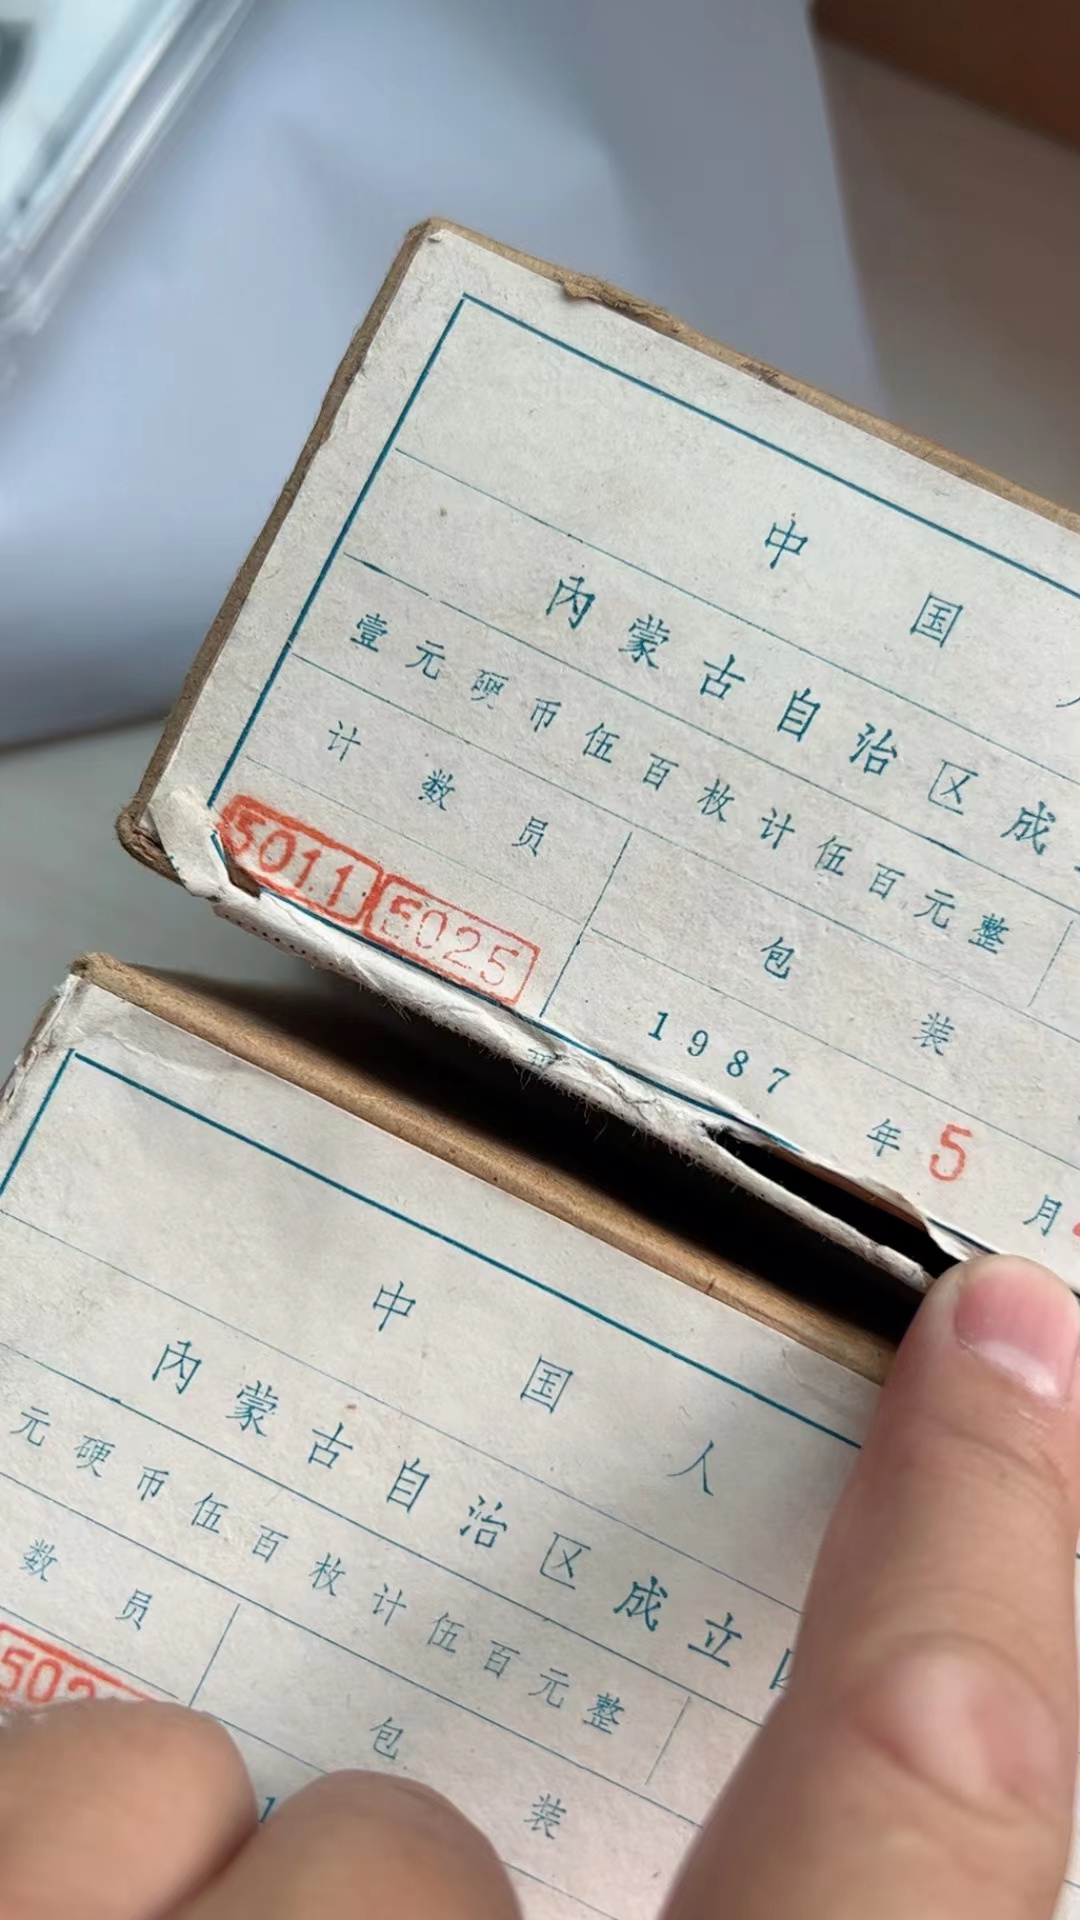 中国人
内蒙古自治区成
壹元硬币伍百枚计伍百元整
计数员
包装
5011 5025
1987年5月
中国人
内蒙古自治区成立
元硬币伍百枚计伍百元整
数员
包装
502
1